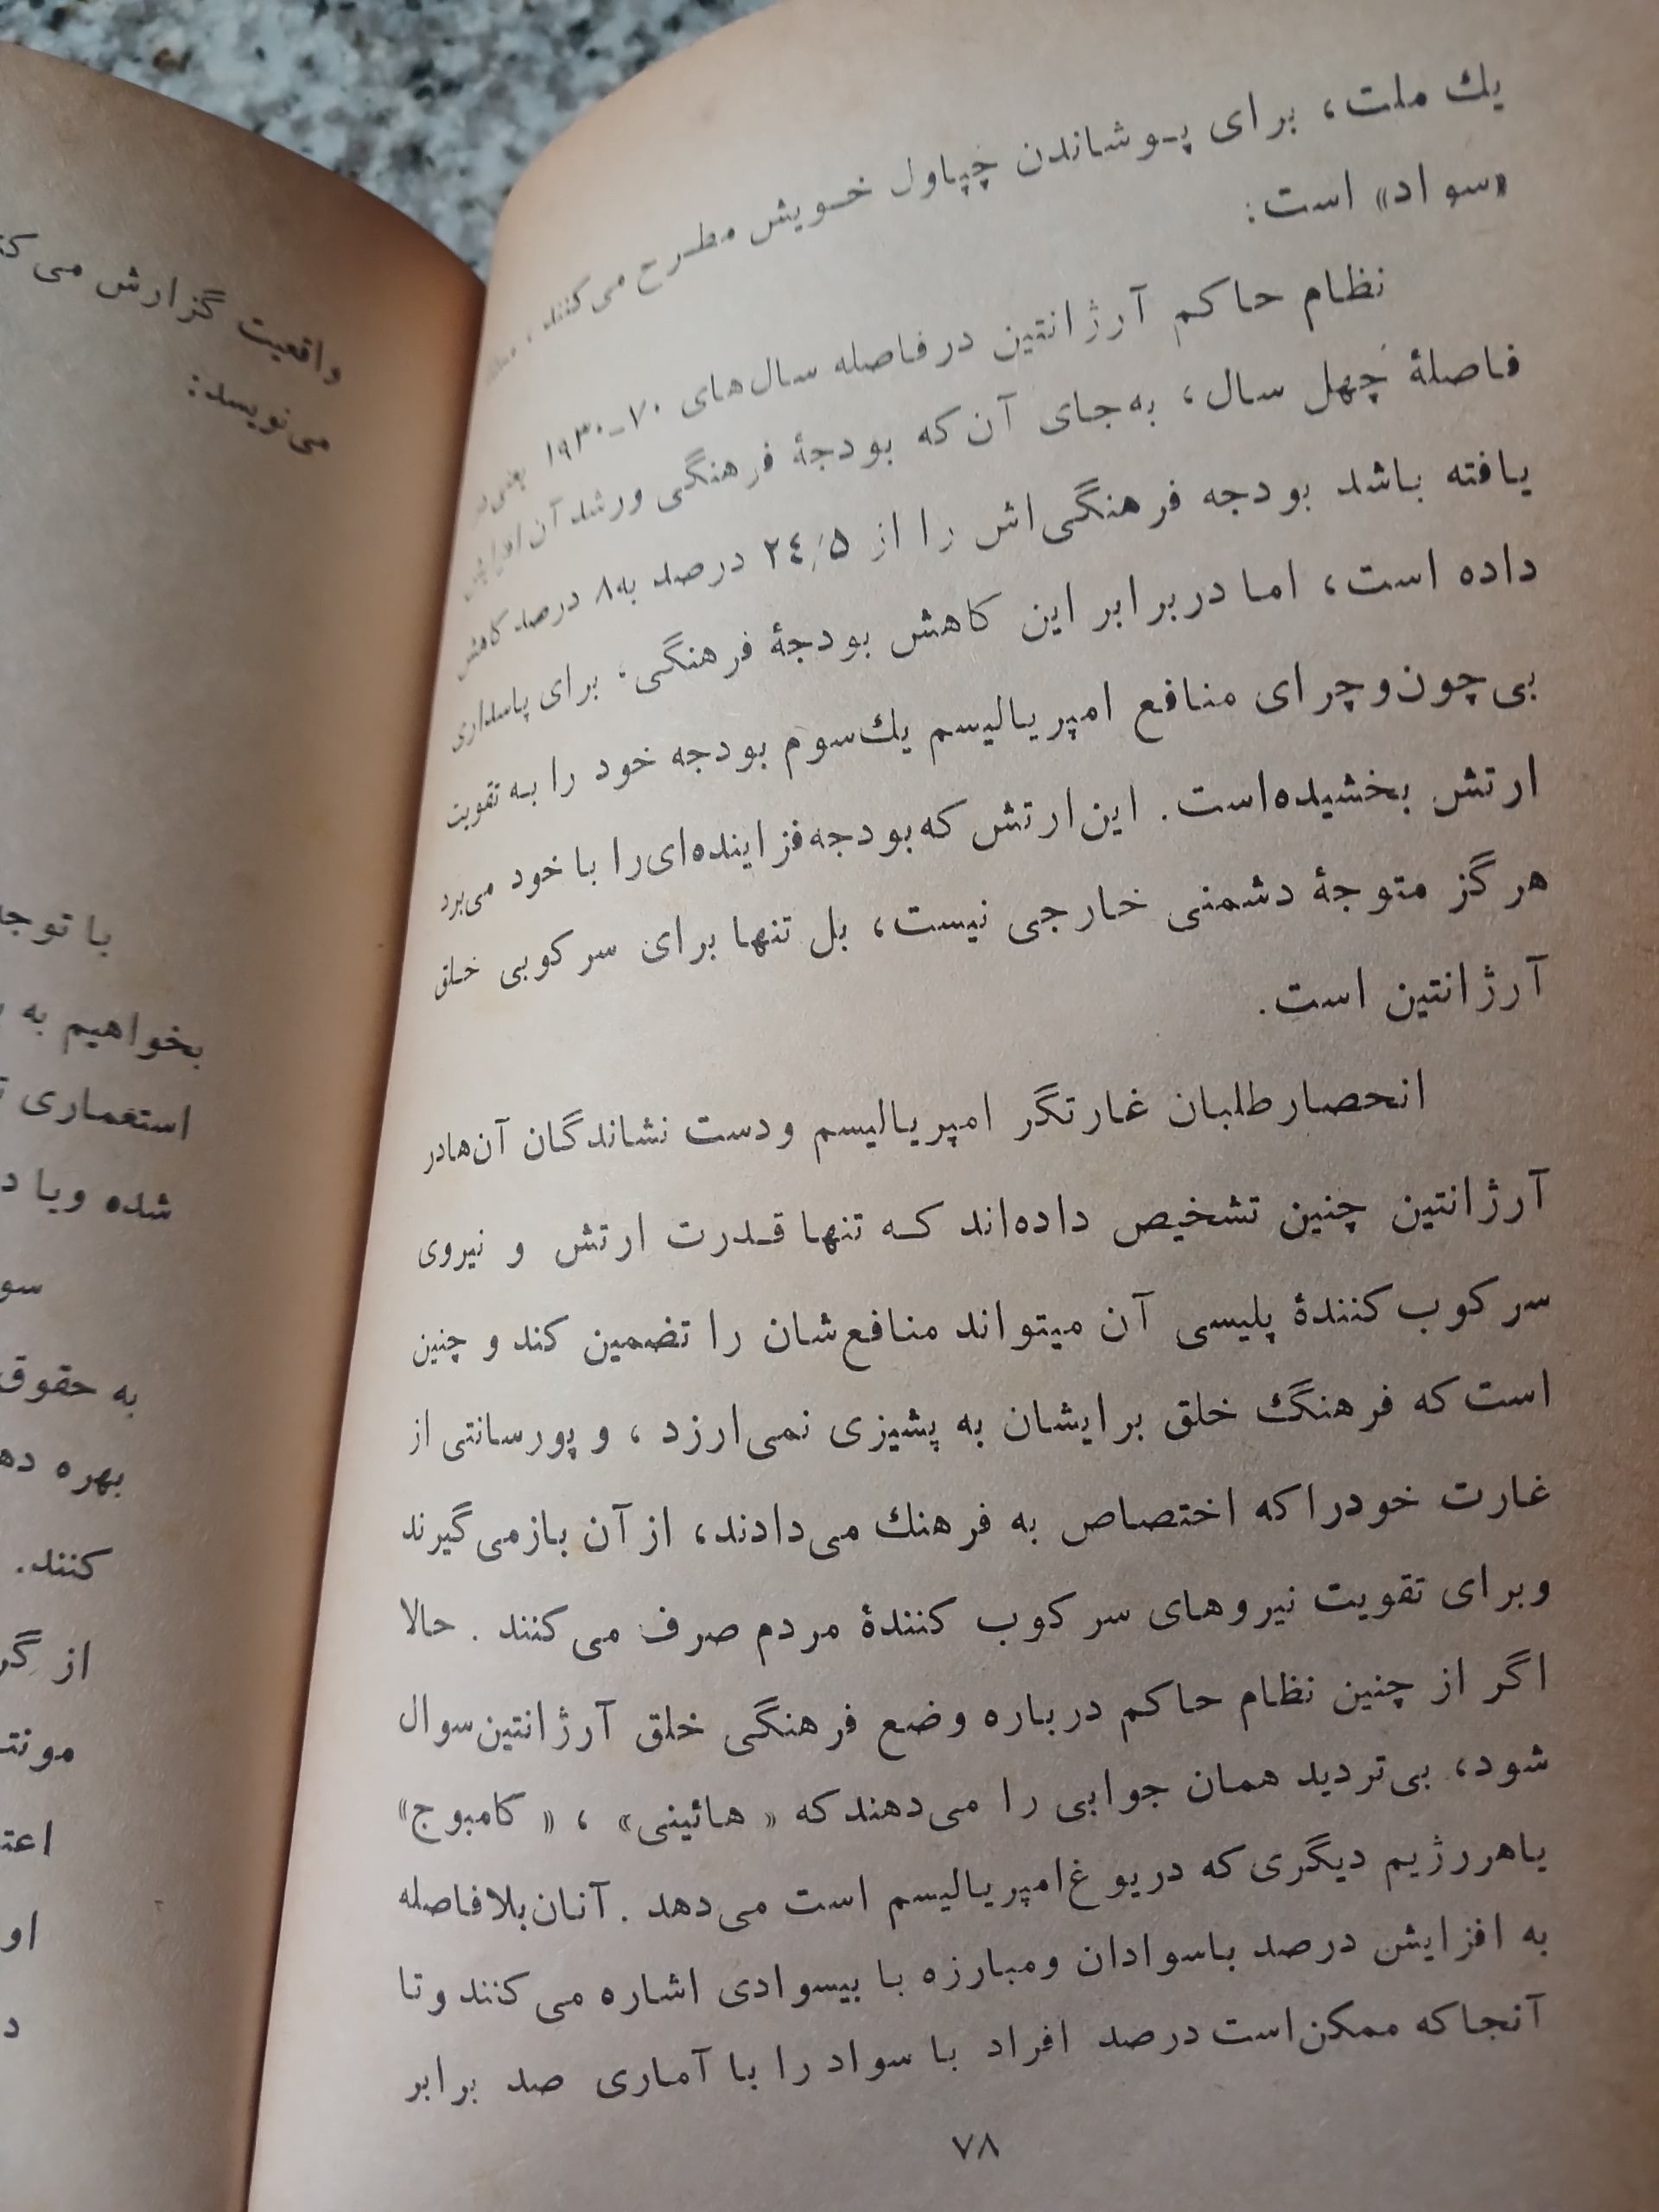 یك ملت، برای پـوشاندن چپاول خـویش مطـرح می‌کنند،
«سواد» است:
نظام حاکم آرژانتین درفاصله سال‌های ۷۰-۱۹۳۰ یعنی
فاصلهٔ چهل سال، به‌جای آن‌که بودجهٔ فرهنگی ورشد آن
یافته باشد بودجه فرهنگی‌اش را از ۲٤/۵ درصد به۸ درصد کاهش
داده است، اما دربرابر این کاهش بودجهٔ فرهنگی، برای پاسداری
بی‌چون‌وچرای منافع امپریالیسم یك‌سوم بودجه خود را بـه تقویت
ارتش بخشیده‌است. این‌ارتش که‌بودجه‌فزاینده‌ای‌را با خود می‌برد
هرگز متوجهٔ دشمنی خارجی نیست، بل تنها برای سرکوبی خلق
آرژانتین است.
انحصارطلبان غارتگر امپریالیسم ودست نشاندگان آن‌هادر
آرژانتین چنین تشخیص داده‌اند کـه تنها قـدرت ارتش و نیروی
سرکوب‌کنندهٔ پلیسی آن میتواند منافع‌شان را تضمین کند و چنین
است‌که فرهنگ خلق برایشان به پشیزی نمی‌ارزد، و پورسانتی از
غارت خودراکه اختصاص به فرهنك می‌دادند، از آن بازمی‌گیرند
وبرای تقویت نیروهای سرکوب کنندهٔ مردم صرف می‌کنند. حالا
اگر از چنین نظام حاکم درباره وضع فرهنگی خلق آرژانتین‌سوال
شود، بی‌تردید همان جوابی را می‌دهندکه «هائینی»، «کامبوج»
یاهررژیم دیگری‌که دریوغ‌امپریالیسم است می‌دهد. آنان‌بلافاصله
به افزایش درصد باسوادان ومبارزه با بیسوادی اشاره می‌کنند وتا
آنجاکه ممکن‌است درصد افراد با سواد را با آماری صد برابر
۷۸
واقعیت گزارش
می‌نویسد:
بخواهیم به
استعماری
شده ویا
به حقوق
بهره
کنند.
از